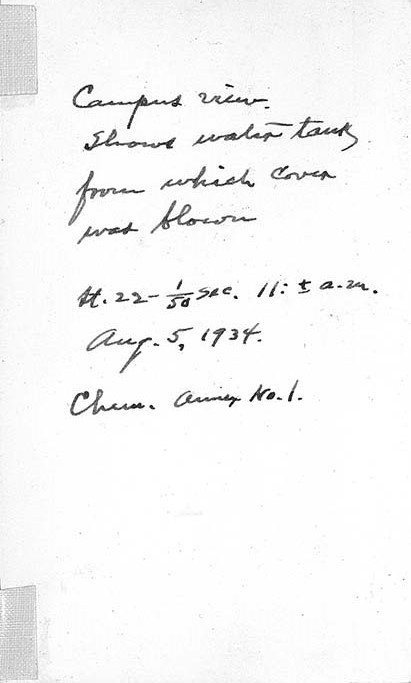 Campus view.
Shows water tank
from which cover
was blown
St. 22 - 1/50 sec. 11: ± a.m.
Aug. 5, 1934.
Chem. Annex No. 1.